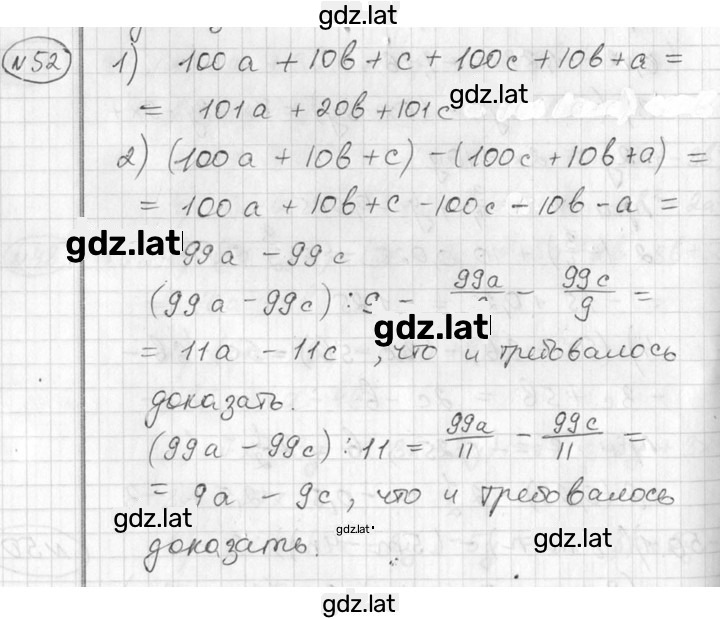 gdz.lat
№52 1) 100a + 10b + c + 100c + 10b + a =
gdz.lat
= 101a + 20b + 101c
2) (100a + 10b + c) - (100c + 10b + a) =
= 100a + 10b + c - 100c - 10b - a =
gdz.lat
99a - 99c
(99a - 99c) : 9 = 99a/ - 99c/9 =
gdz.lat
= 11a - 11c, что и требовалось
доказать.
(99a - 99c) : 11 = 99a/11 - 99c/11 =
= 9a - 9c, что и требовалось
gdz.lat
gdz.lat
gdz.lat
доказать.
gdz.lat